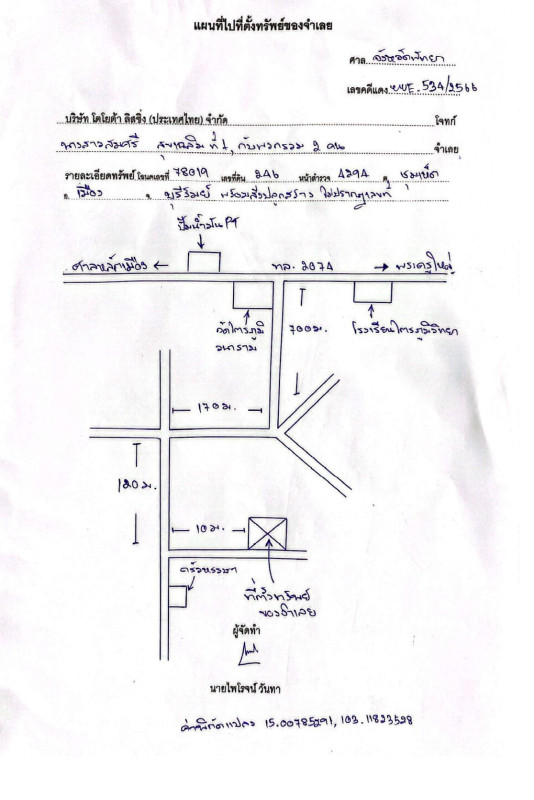 แผนที่ไปที่ตั้งทรัพย์ของจำเลย
ศาล จังหวัดพัทยา
เลขคดีแดง ผบE. 534/2566
บริษัท โตโยต้า ลีสซิ่ง (ประเทศไทย) จำกัด โจทก์
นางสาวสมศรี สุขเฉลิม ที่ 1, กับพวกรวม 2 คน จำเลย
รายละเอียดทรัพย์ โฉนดเลขที่ 78019 เลขที่ดิน 246 หน้าสำรวจ 4294 ต. ชุมเห็ด
อ. เมือง จ. บุรีรัมย์ พร้อมสิ่งปลูกสร้าง ไม่ปรากฏเลขที่
ปั๊มน้ำมัน PT
ศาลหลักเมือง ← ทล. 2074 → พระครูใหญ่
วัดไตรภูมิ
วนาราม
700 ม.
โรงเรียนไตรภูมิวิทยา
170 ม.
120 ม.
10 ม.
ครัวพรรษา
ที่ตั้งทรัพย์
ของจำเลย
ผู้จัดทำ
นายไพโรจน์ วันทา
ค่าพิกัดแปลง 15.00785291, 103.11823528